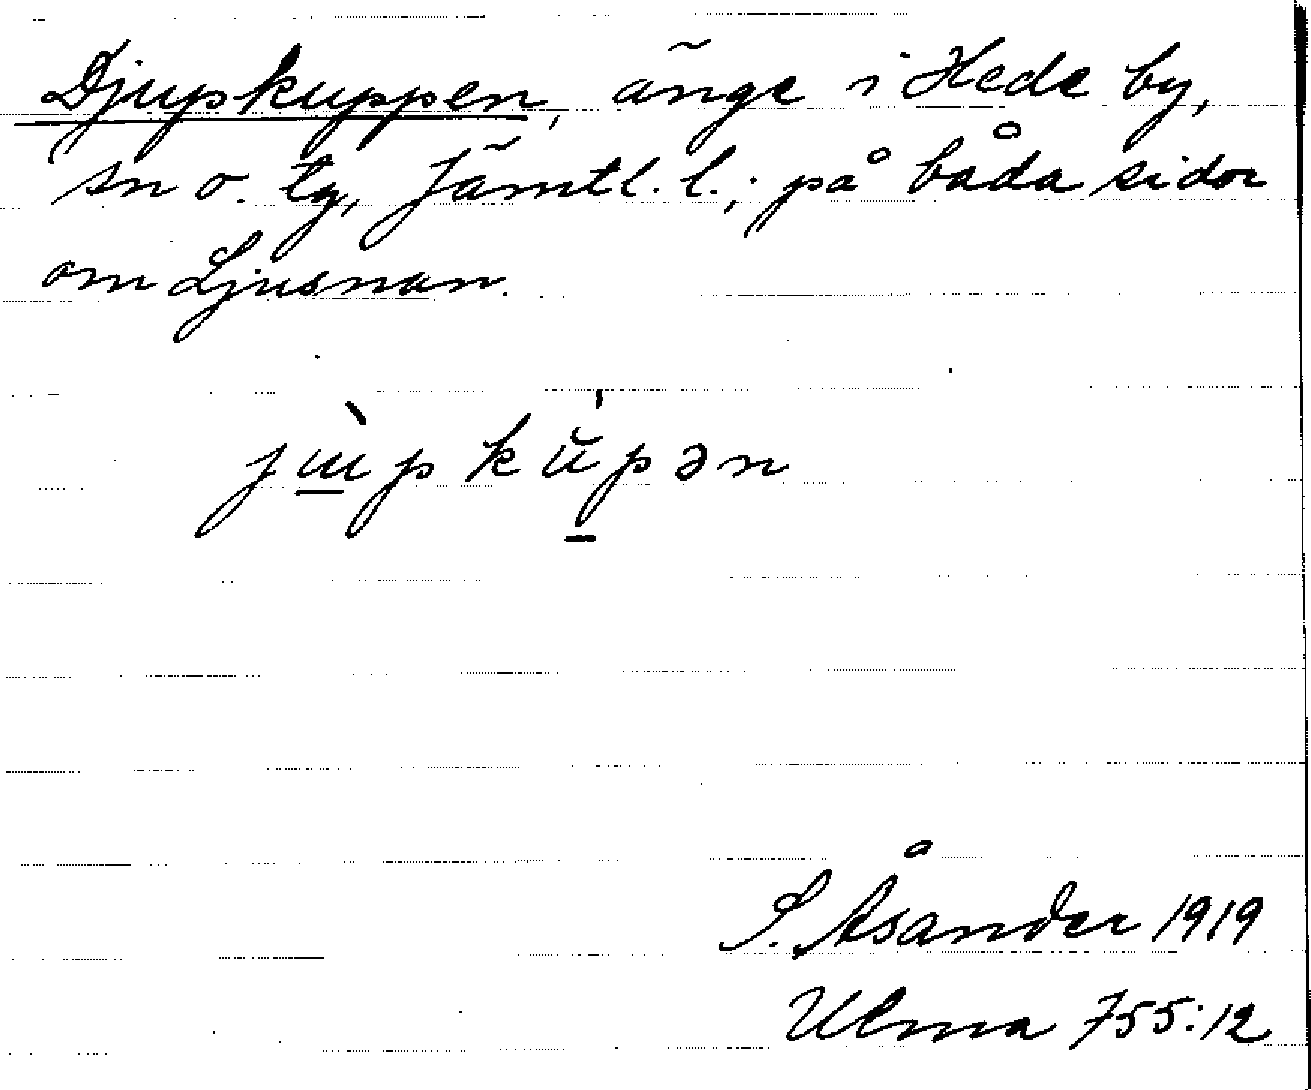 Djupkuppen, änge i Hede by,
sn o. tg, Jämtl. l.; på båda sidor
om Ljusnan.
jɯ̲̀pkŭ̲pən
S. Åsander 1919
Ulma 755:12